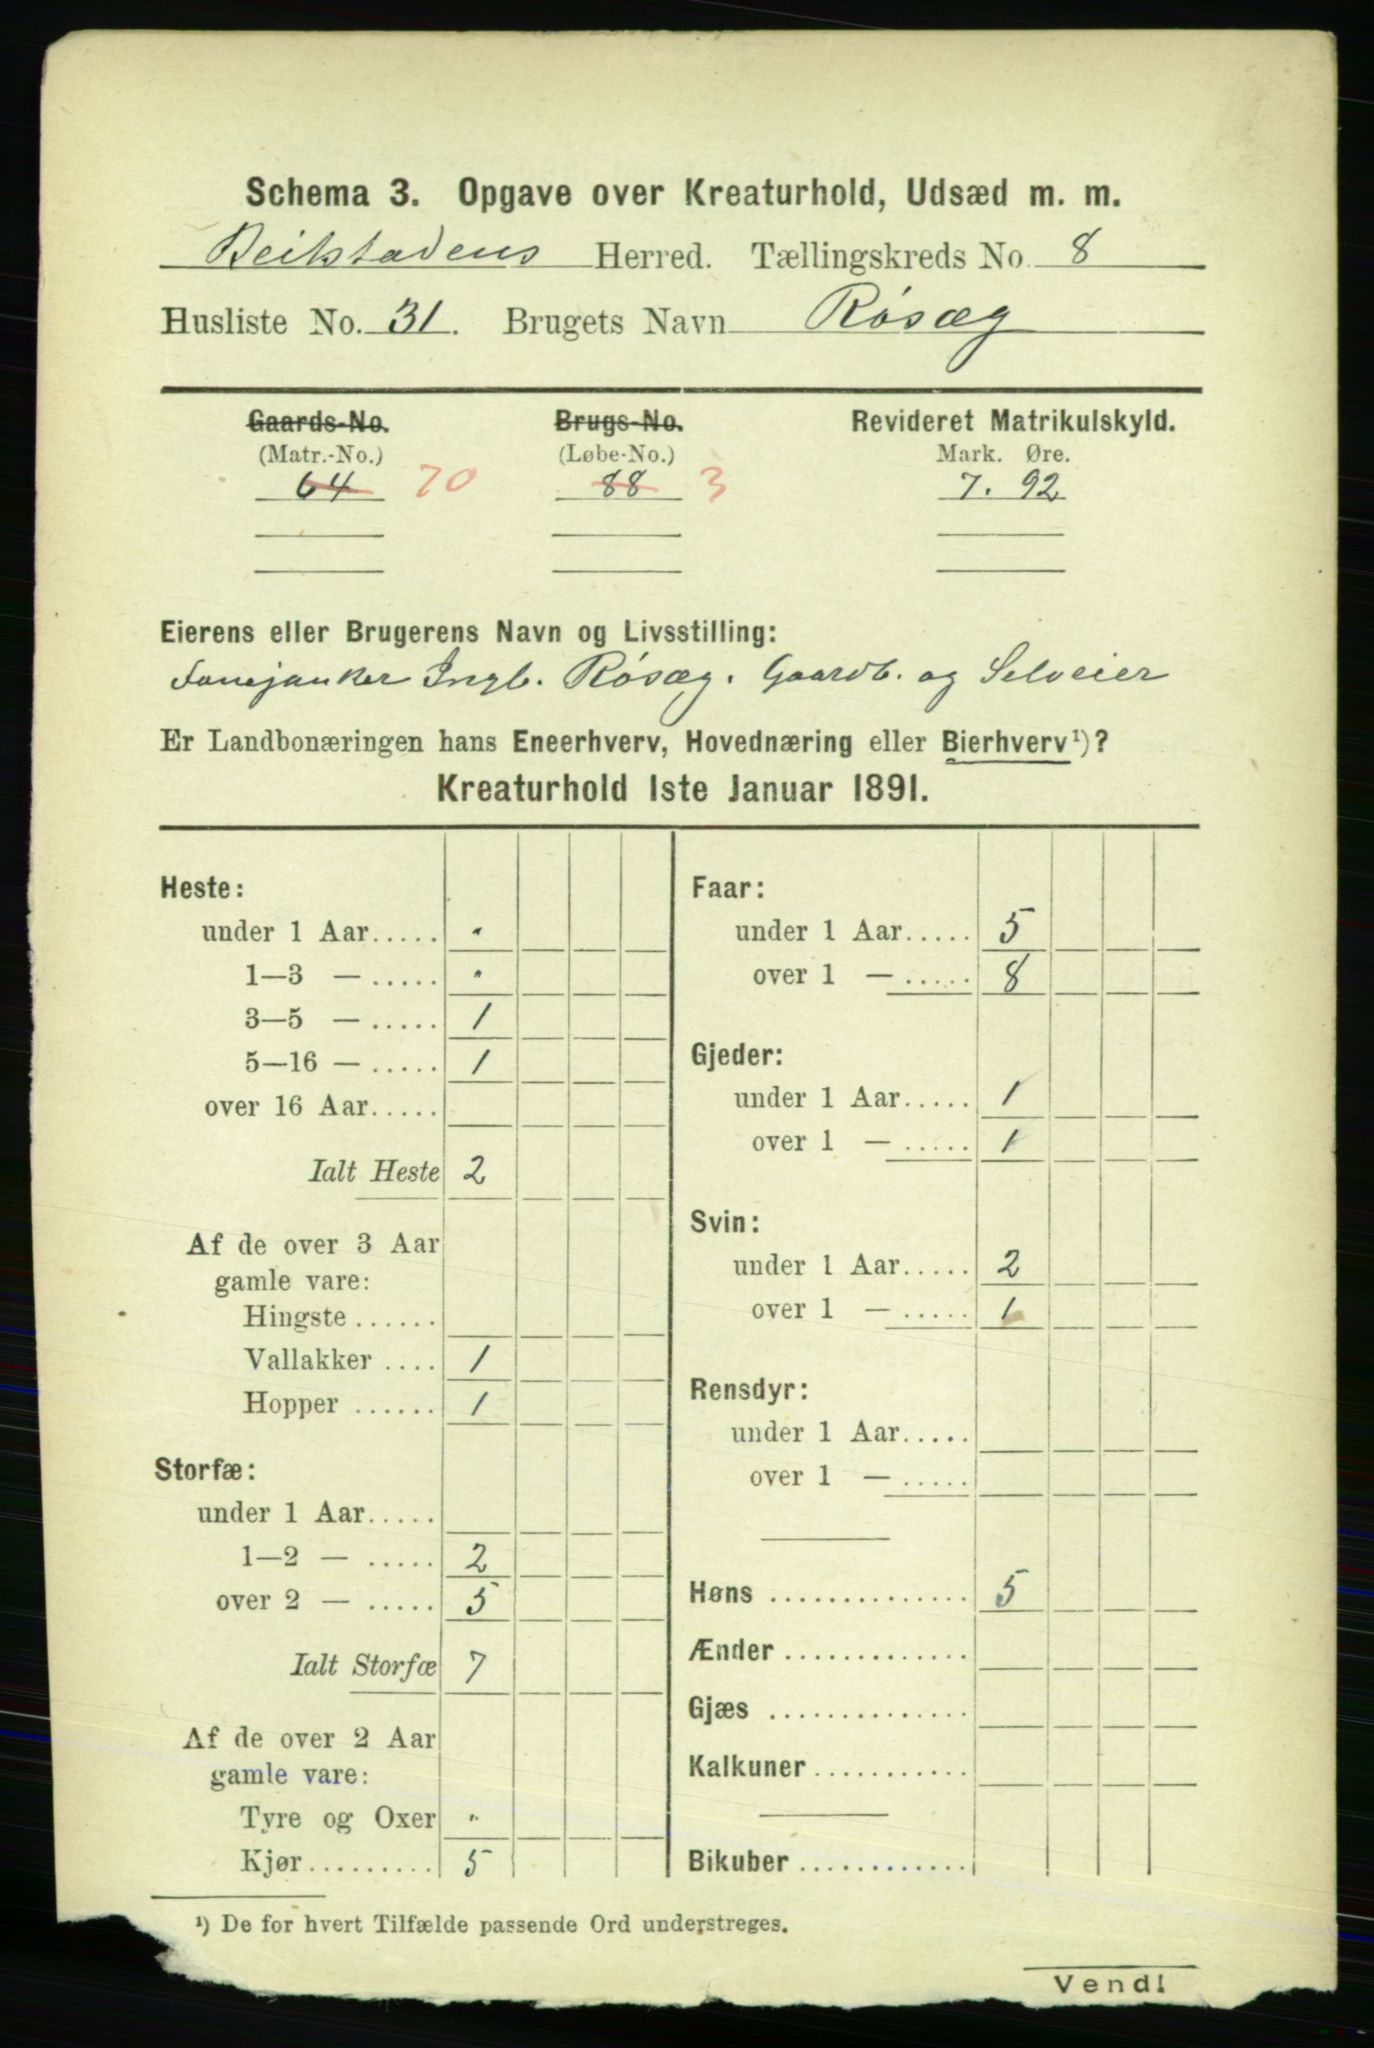 Schema 3. Opgave over Kreaturhold, Udsæd m. m.
Beitstadens Herred. Tællingskreds No. 8
Husliste No. 31. Brugets Navn Røsæg
Gaards-No. Brugs-No. Revideret Matrikulskyld.
(Matr.-No.) (Løbe-No.) Mark. Øre.
64 70 88 3 7. 92
Eierens eller Brugerens Navn og Livsstilling:
Fanejunker Ingb. Røsæg. Gaardb. og Selveier
Er Landbonæringen hans Eneerhverv, Hovednæring eller Bierhverv¹)?
Kreaturhold 1ste Januar 1891.
Heste:
under 1 Aar..... "
1—3 — ..... "
3—5 — ..... 1
5—16 — ..... 1
over 16 Aar.....
Ialt Heste 2
Af de over 3 Aar
gamle vare:
Hingste ......
Vallakker .... 1
Hopper ...... 1
Storfæ:
under 1 Aar.....
1—2 — ..... 2
over 2 — ..... 5
Ialt Storfæ 7
Af de over 2 Aar
gamle vare:
Tyre og Oxer "
Kjør......... 5
Faar:
under 1 Aar..... 5
over 1 — ..... 8
Gjeder:
under 1 Aar..... 1
over 1 — ..... 1
Svin:
under 1 Aar..... 2
over 1 — ..... 1
Rensdyr:
under 1 Aar.....
over 1 — .....
Høns .............. 5
Ænder .............
Gjæs ..............
Kalkuner...........
Bikuber ............
¹) De for hvert Tilfælde passende Ord understreges.
Vend!